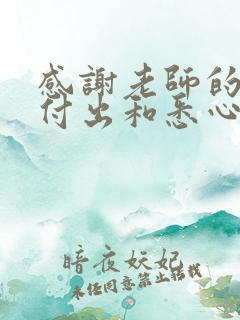 感謝老師的
付出和悉心
暗夜妖妃
未经同意禁止转载